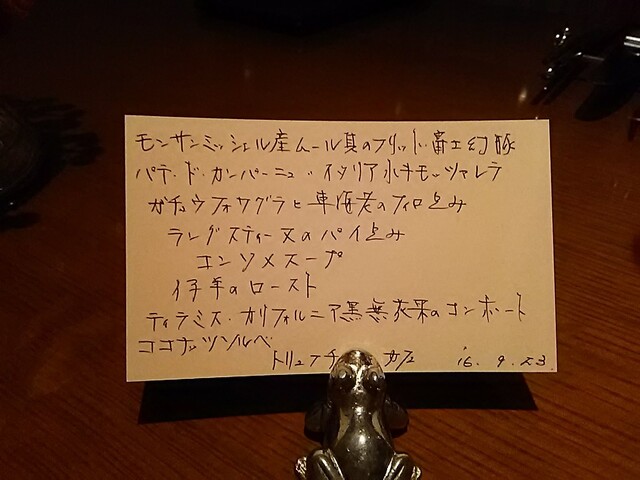 モンサンミッシェル産ムール貝のフリット・富士幻豚
パテ・ド・カンパーニュ・イタリア水牛モッツァレラ
ガチョウフォワグラと車海老のフィロ包み
ラングスティーヌのパイ包み
コンソメスープ
仔羊のロースト
ティラミス・カリフォルニア黒無花果のコンポート
ココナッツソルベ
トリュフチ カフェ '16. 9. 23